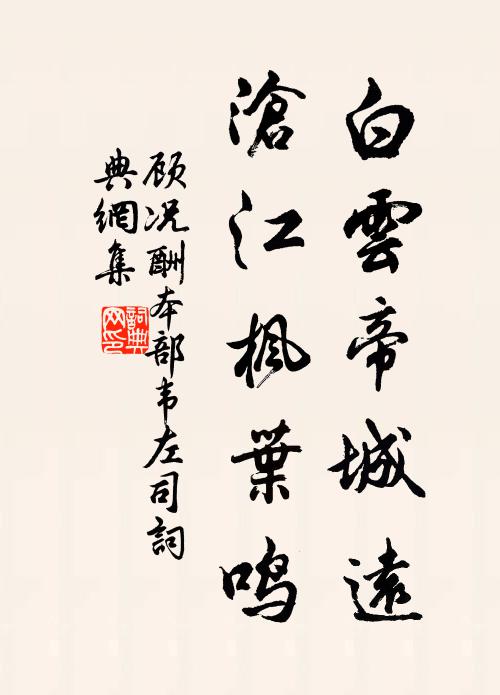 白雲帝城遠
滄江楓葉鳴
顾况酬本部韦左司詞
典網集
詞典网印